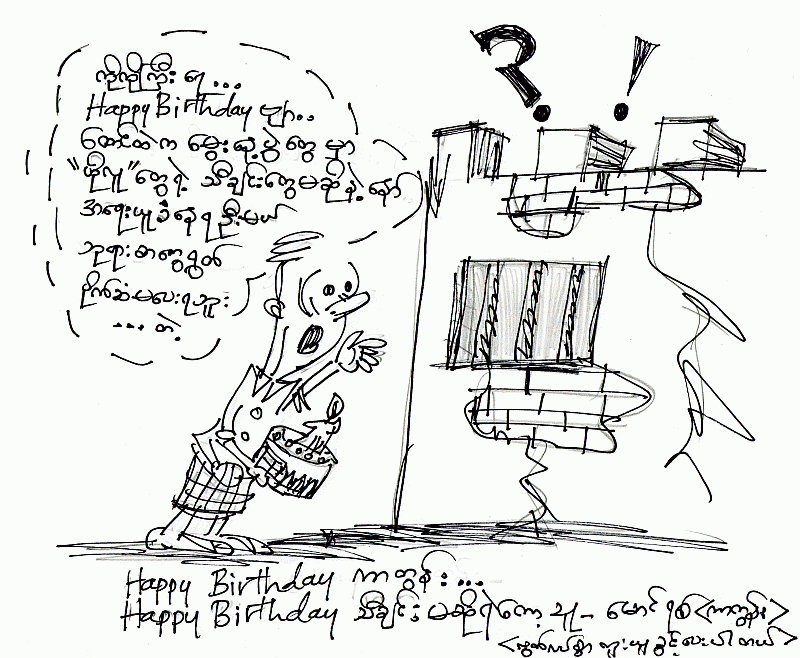 ကိုကိုကြီး ရေ ...
Happy Birthday ဗျာ..
ထောင်ထဲက မွေးနေ့ပွဲတွေ မှာ
" " တွေရဲ့ သီချင်းတွေမဆိုနဲ့နော်
အရေးယူခံနေရဦးမယ်
ဘုရားစာရွတ်
စိုက်ဆံမပေးရဘူး
... တဲ့
? !
Happy Birthday ကာတွန်း ...
Happy Birthday သီချင်း မဆိုရဲတော့ သူ - မောင်ရစ် <ကာတွန်း>
<လွတ်လပ်စွာ ကူးယူခွင့်ပေးပါတယ်>